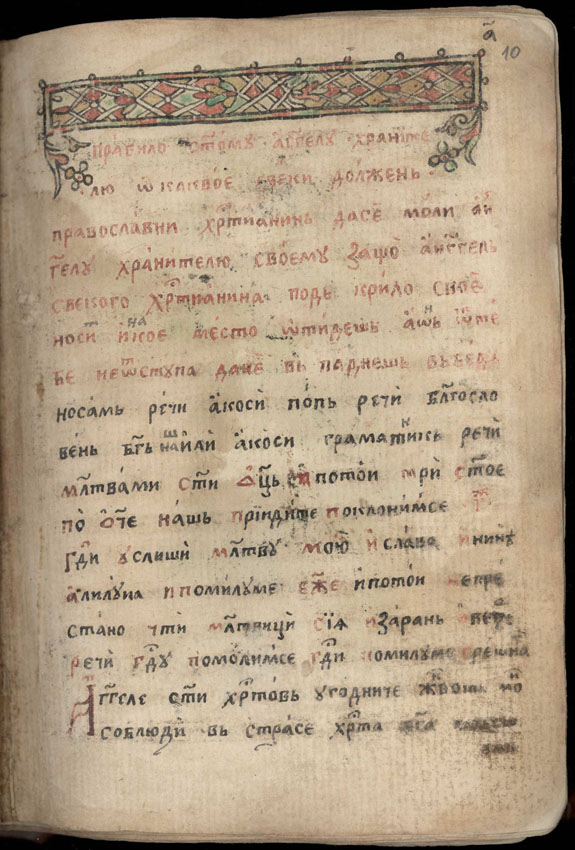 а҃
10
правило ст҃ому аг҃гелу храните
лю ѿ какво е свеки должень
православни хрⷭ҇тіанинь да се моли ан
г҃елу хранителю своему защо анг҃гель
свекого хрⷭ҇тіанина подь крило свое
носи и на кое место ѿтидешь а ѡнь ѿ те
бе не ѿступа да не вь паднешь вь бедь
но самь речи ако си попь речи бл҃госло
вень бг҃ь нашь и аи ако си граматикь речи
мл҃твами ст҃и ѡц҃ь и потои три ст҃ое
по ѡт҃че нашь пріидѝте поклонимсе г҃
гд҃и услиши мл҃тву мою и слава и нинѣ
алилуиа и помилуме еже и потои непре
стано чти мл҃твици сїѧ и зарань и вечерь
речи гд҃у помолимсе гд҃и помилуме грешна
Аг҃геле ст҃и хрⷭ҇товь угодниче животь мо
соблюди вь страсе хрⷭ҇та бг҃а